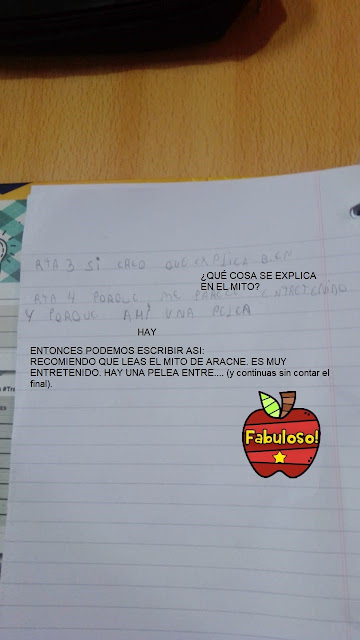 RTA 3 SI CREO QUE EXPLICA BIEN
¿QUÉ COSA SE EXPLICA
EN EL MITO?
RTA 4 PORQUE ME PARECE ENTRETENIDO
Y PORQUE AHI UNA PELEA
HAY
ENTONCES PODEMOS ESCRIBIR ASI:
RECOMIENDO QUE LEAS EL MITO DE ARACNE. ES MUY
ENTRETENIDO. HAY UNA PELEA ENTRE.... (y continuas sin contar el
final).
Fabuloso!